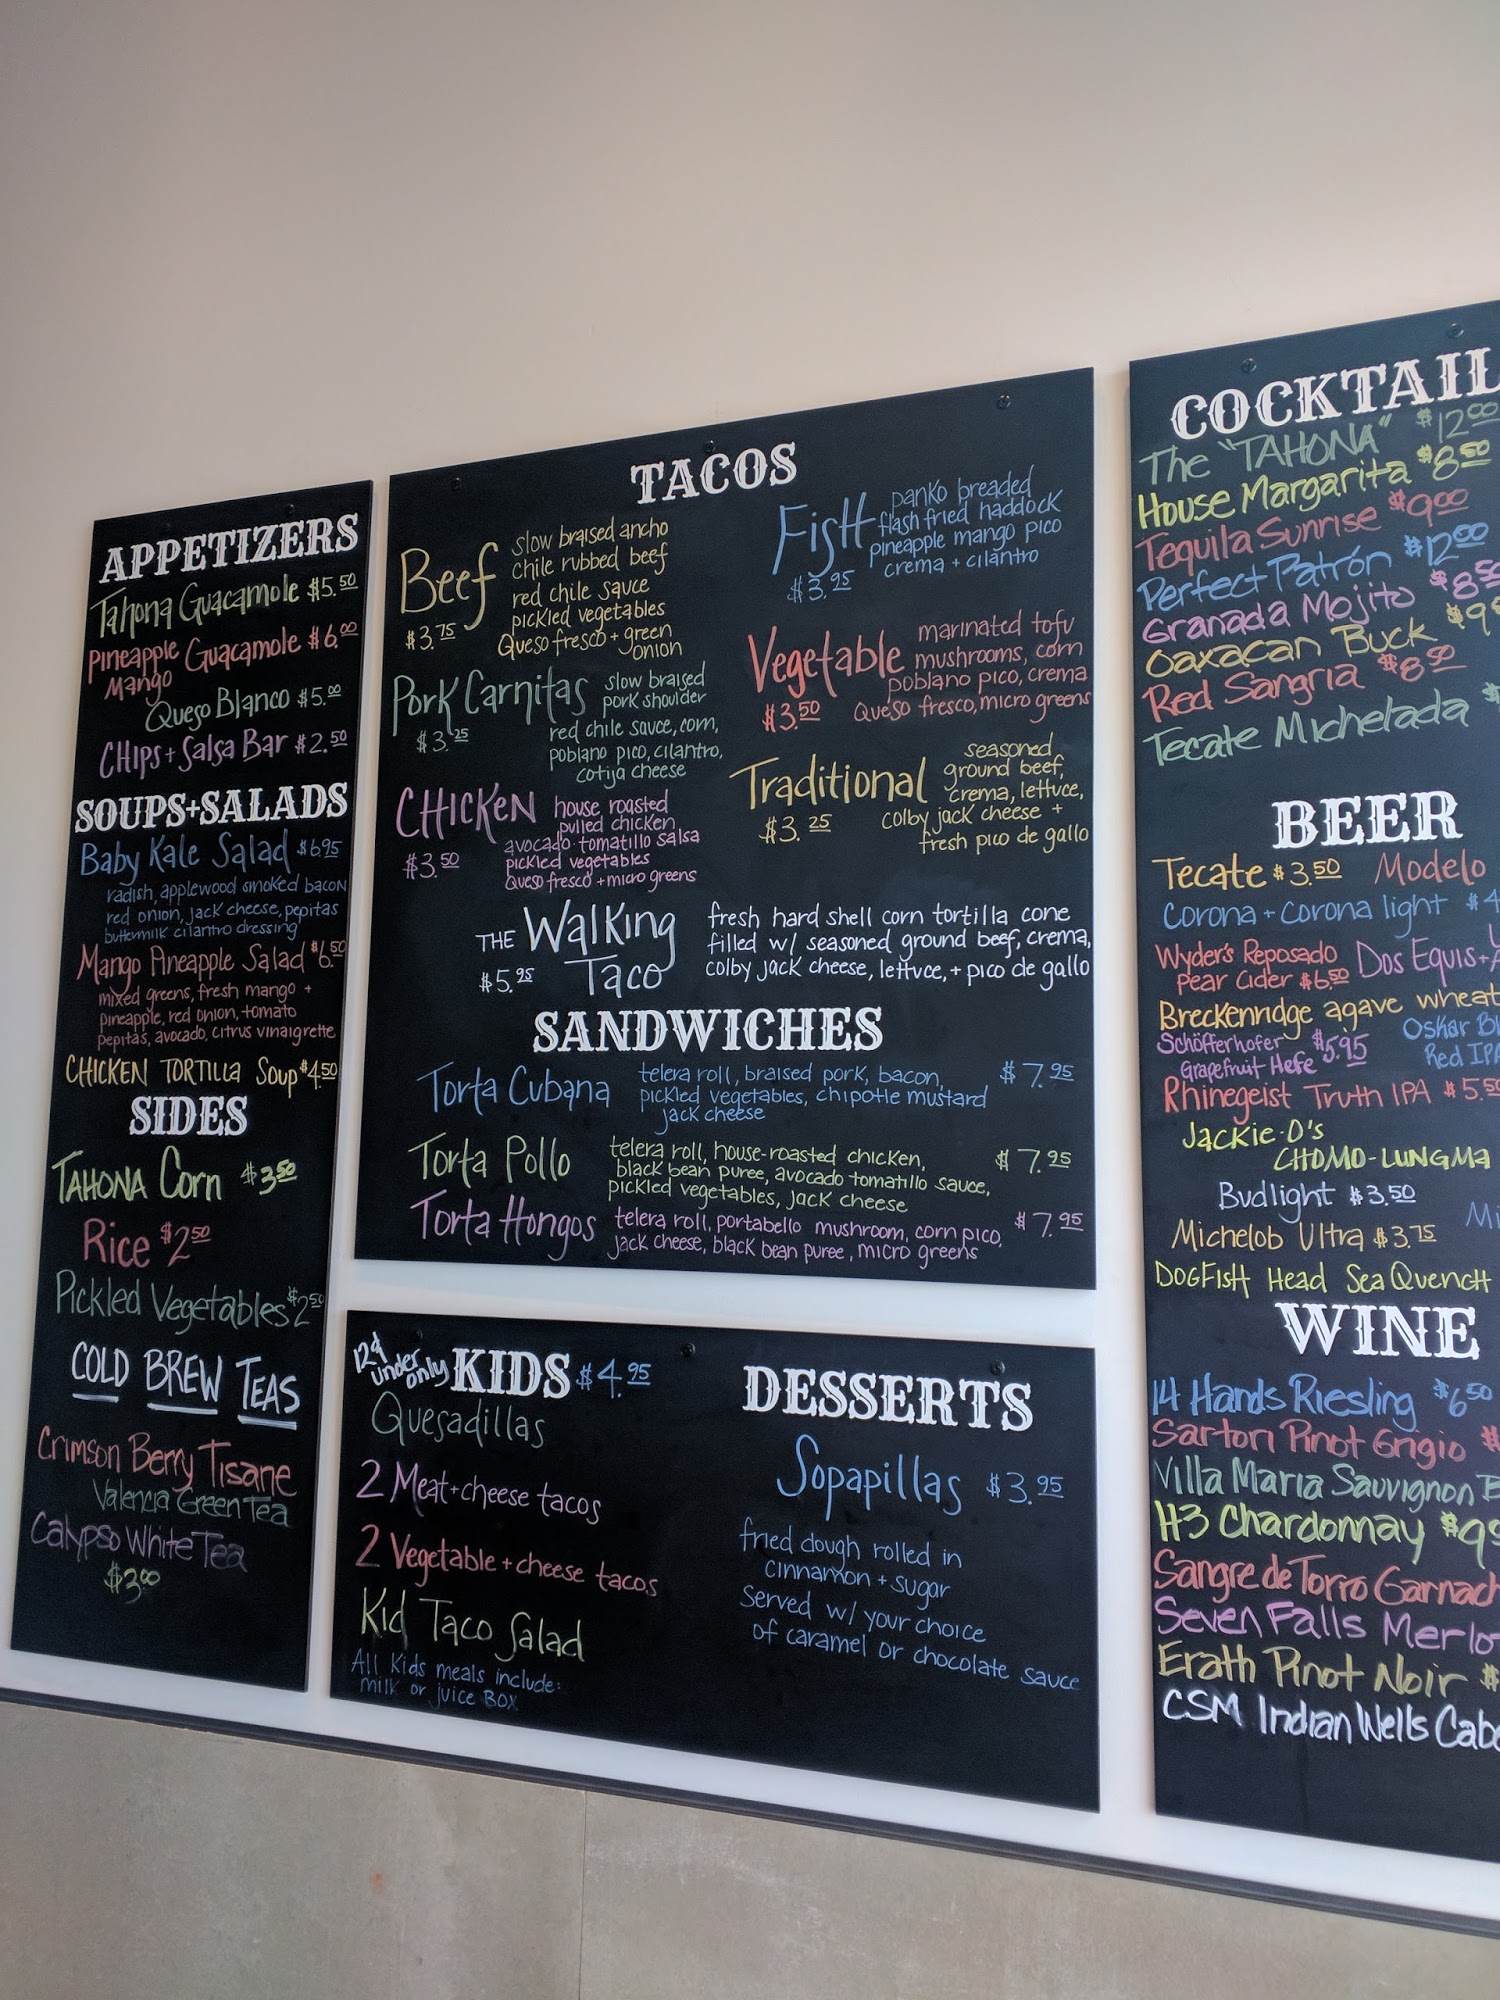 APPETIZERS
Tahona Guacamole $5.50
Pineapple Mango Guacamole $6.00
Queso Blanco $5.00
CHIPS + Salsa Bar $2.50
SOUPS+SALADS
Baby Kale Salad $6.95
radish, applewood smoked bacon
red onion, jack cheese, pepitas
buttermilk cilantro dressing
Mango Pineapple Salad $6.50
mixed greens, fresh mango +
pineapple, red onion, tomato
pepitas, avocado, citrus vinaigrette
CHICKEN TORTILLA Soup $4.50
SIDES
TAHONA Corn $3.50
Rice $2.50
Pickled Vegetables $2.50
COLD BREW TEAS
Crimson Berry Tisane
Valencia Green Tea
Calypso White Tea
$3.00
TACOS
Beef
$3.75
slow braised ancho
chile rubbed beef
red chile sauce
pickled vegetables
Queso fresco + green
onion
Pork Carnitas
$3.25
slow braised
pork shoulder
red chile sauce, corn,
poblano pico, cilantro,
cotija cheese
CHICKEN
$3.50
house roasted
pulled chicken
avocado tomatillo salsa
pickled vegetables
Queso fresco + micro greens
FisH
$3.95
panko breaded
flash fried haddock
pineapple mango pico
crema + cilantro
Vegetable
$3.50
marinated tofu
mushrooms, corn
poblano pico, crema
Queso fresco, micro greens
Traditional
$3.25
seasoned
ground beef,
crema, lettuce,
colby jack cheese +
fresh pico de gallo
THE Walking
Taco
$5.95
fresh hard shell corn tortilla cone
filled w/ seasoned ground beef, crema,
colby jack cheese, lettuce, + pico de gallo
SANDWICHES
Torta Cubana
telera roll, braised pork, bacon,
pickled vegetables, chipotle mustard
jack cheese
$7.95
Torta Pollo
telera roll, house-roasted chicken,
black bean puree, avocado tomatillo sauce,
pickled vegetables, jack cheese
$7.95
Torta Hongos
telera roll, portabello mushroom, corn pico,
jack cheese, black bean puree, micro greens
$7.95
12 & under only
KIDS $4.95
Quesadillas
2 Meat + cheese tacos
2 Vegetable + cheese tacos
Kid Taco Salad
All Kids meals include:
milk or juice BOX
DESSERTS
Sopapillas $3.95
fried dough rolled in
cinnamon + sugar
Served w/ your choice
of caramel or chocolate sauce
COCKTAIL
The "TAHONA" $12.00
House Margarita $8.50
Tequila Sunrise $9.00
Perfect Patrón $12.00
Granada Mojito $8.50
Oaxacan Buck $9
Red Sangria $8.50
Tecate Michelada $
BEER
Tecate $3.50 Modelo
Corona + Corona light $4
Wyder's Reposado
pear Cider $6.50
Dos Equis +
Breckenridge agave wheat
Schöfferhofer $5.95
Grapefruit Hefe
Oskar Bl
Red IPA
Rhinegeist Truth IPA $5.50
Jackie-O's
CHOMO-LUNGMA
Budlight $3.50
Mi
Michelob Ultra $3.75
DOGFISH Head SeaQuench
WINE
14 Hands Riesling $6.50
Sartori Pinot Grigio $
Villa Maria Sauvignon B
H3 Chardonnay $9
Sangre de Torro Garnach
Seven Falls Merlo
Erath Pinot Noir $
CSM Indian Wells Cab